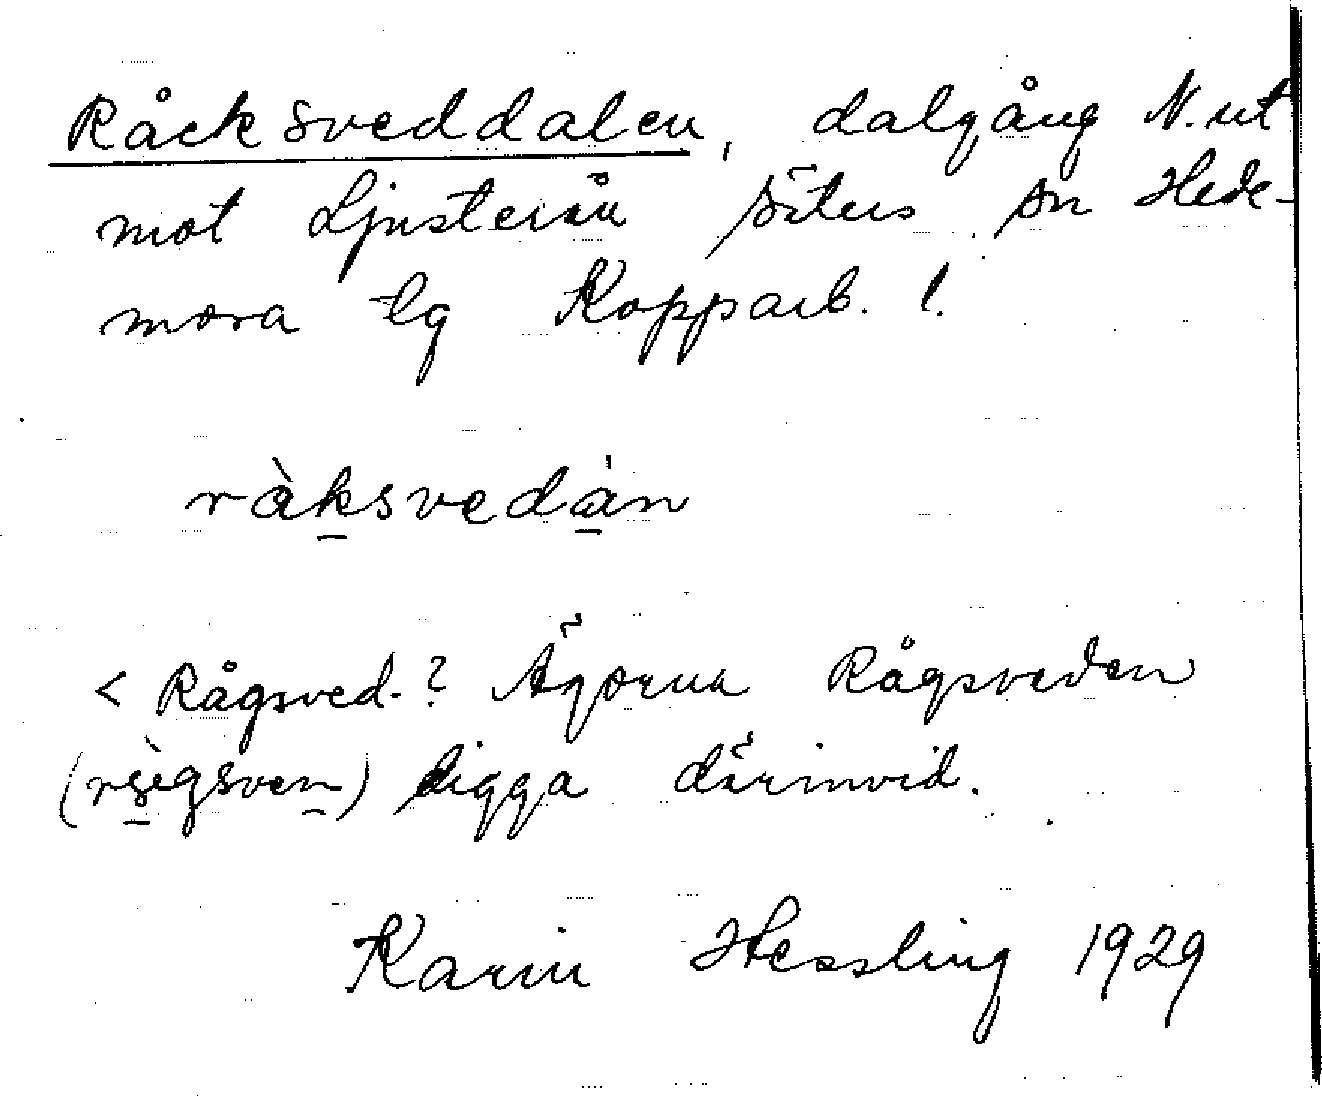 Råcksveddalen, dalgång N. ut
mot Ljusterån Säters sn Hede-
mora tg Kopparb. l.
ràksvedàn
< Rågsved-? Ägorna Rågsveden
ligga därinvid.
Karin Hessling 1929